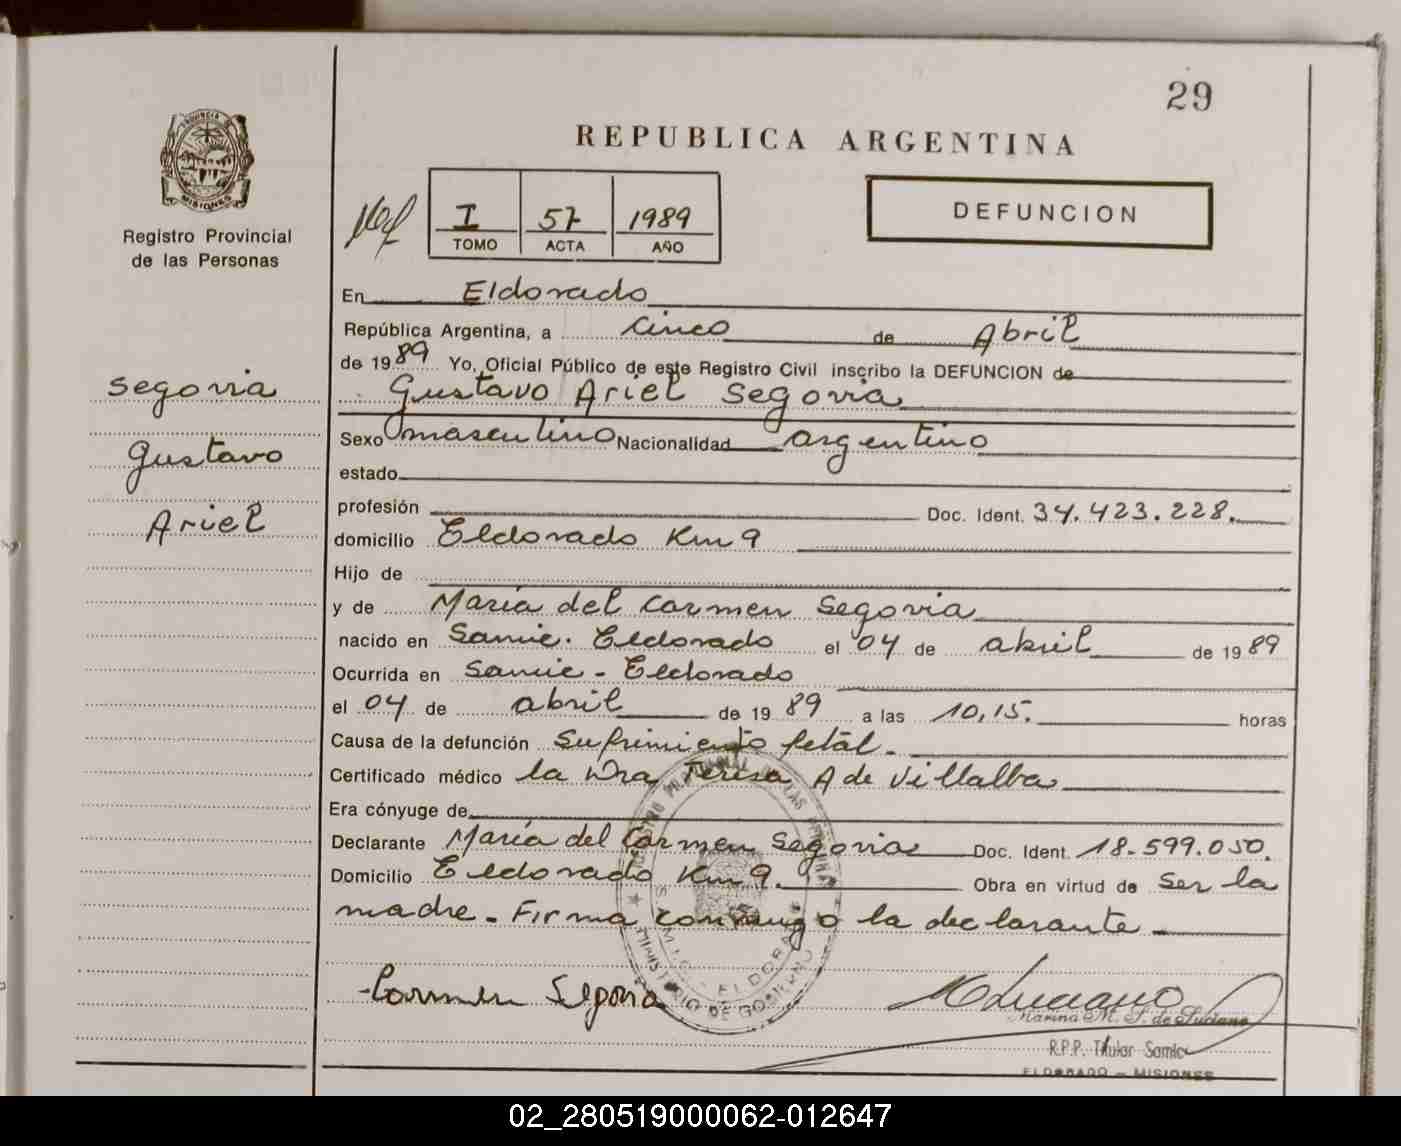 29
REPUBLICA ARGENTINA
PROVINCIA DE
MISIONES
Registro Provincial
de las Personas
I 57 1989
TOMO ACTA AÑO
DEFUNCION
En Eldorado
República Argentina, a cinco de Abril
de 1989 Yo, Oficial Público de este Registro Civil inscribo la DEFUNCION de
Gustavo Ariel Segovia
Segovia
Gustavo
Ariel
Sexo masculino Nacionalidad argentino
estado
profesión Doc. Ident. 34.423.228.
domicilio Eldorado Km 9
Hijo de
y de María del Carmen Segovia
nacido en Samic. Eldorado el 04 de abril de 1989
Ocurrida en Samic - Eldorado
el 04 de abril de 1989 a las 10,15. horas
Causa de la defunción Sufrimiento fetal.
Certificado médico la Dra Teresa A de Villalba
Era cónyuge de
Declarante María del Carmen Segovia Doc. Ident. 18-599.050.
Domicilio Eldorado Km 9. Obra en virtud de Ser la
madre. Firma conmigo la declarante
REGISTRO PROVINCIAL DE LAS PERSONAS
SAMIC - ELDORADO
MINISTERIO DE GOBIERNO
Carmen Segovia
M Luciano
Marina M. S. de Luciano
R.P.P. Titular Samic
ELDORADO - MISIONES
02_280519000062-012647